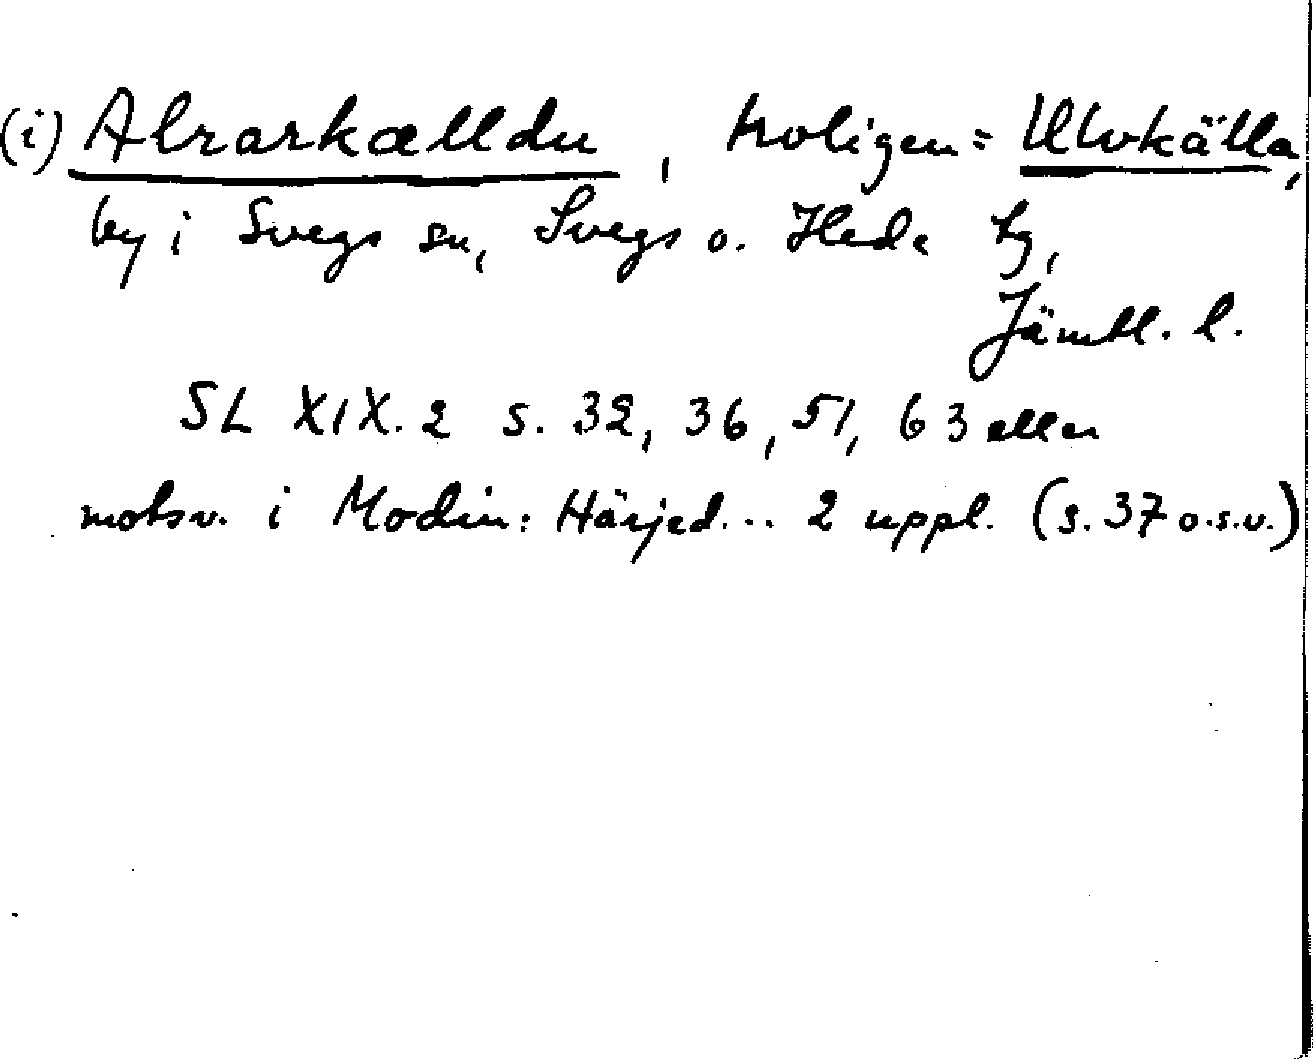 (i) Alrarkælldu, troligen = Ulvkälla,
by i Svegs sn, Svegs o. Heda tg,
Jämtl. l.
SL XIX. 2 s. 32, 36, 51, 63 eller
motsv. i Modin: Härjed... 2 uppl. (s. 37 o.s.v.)